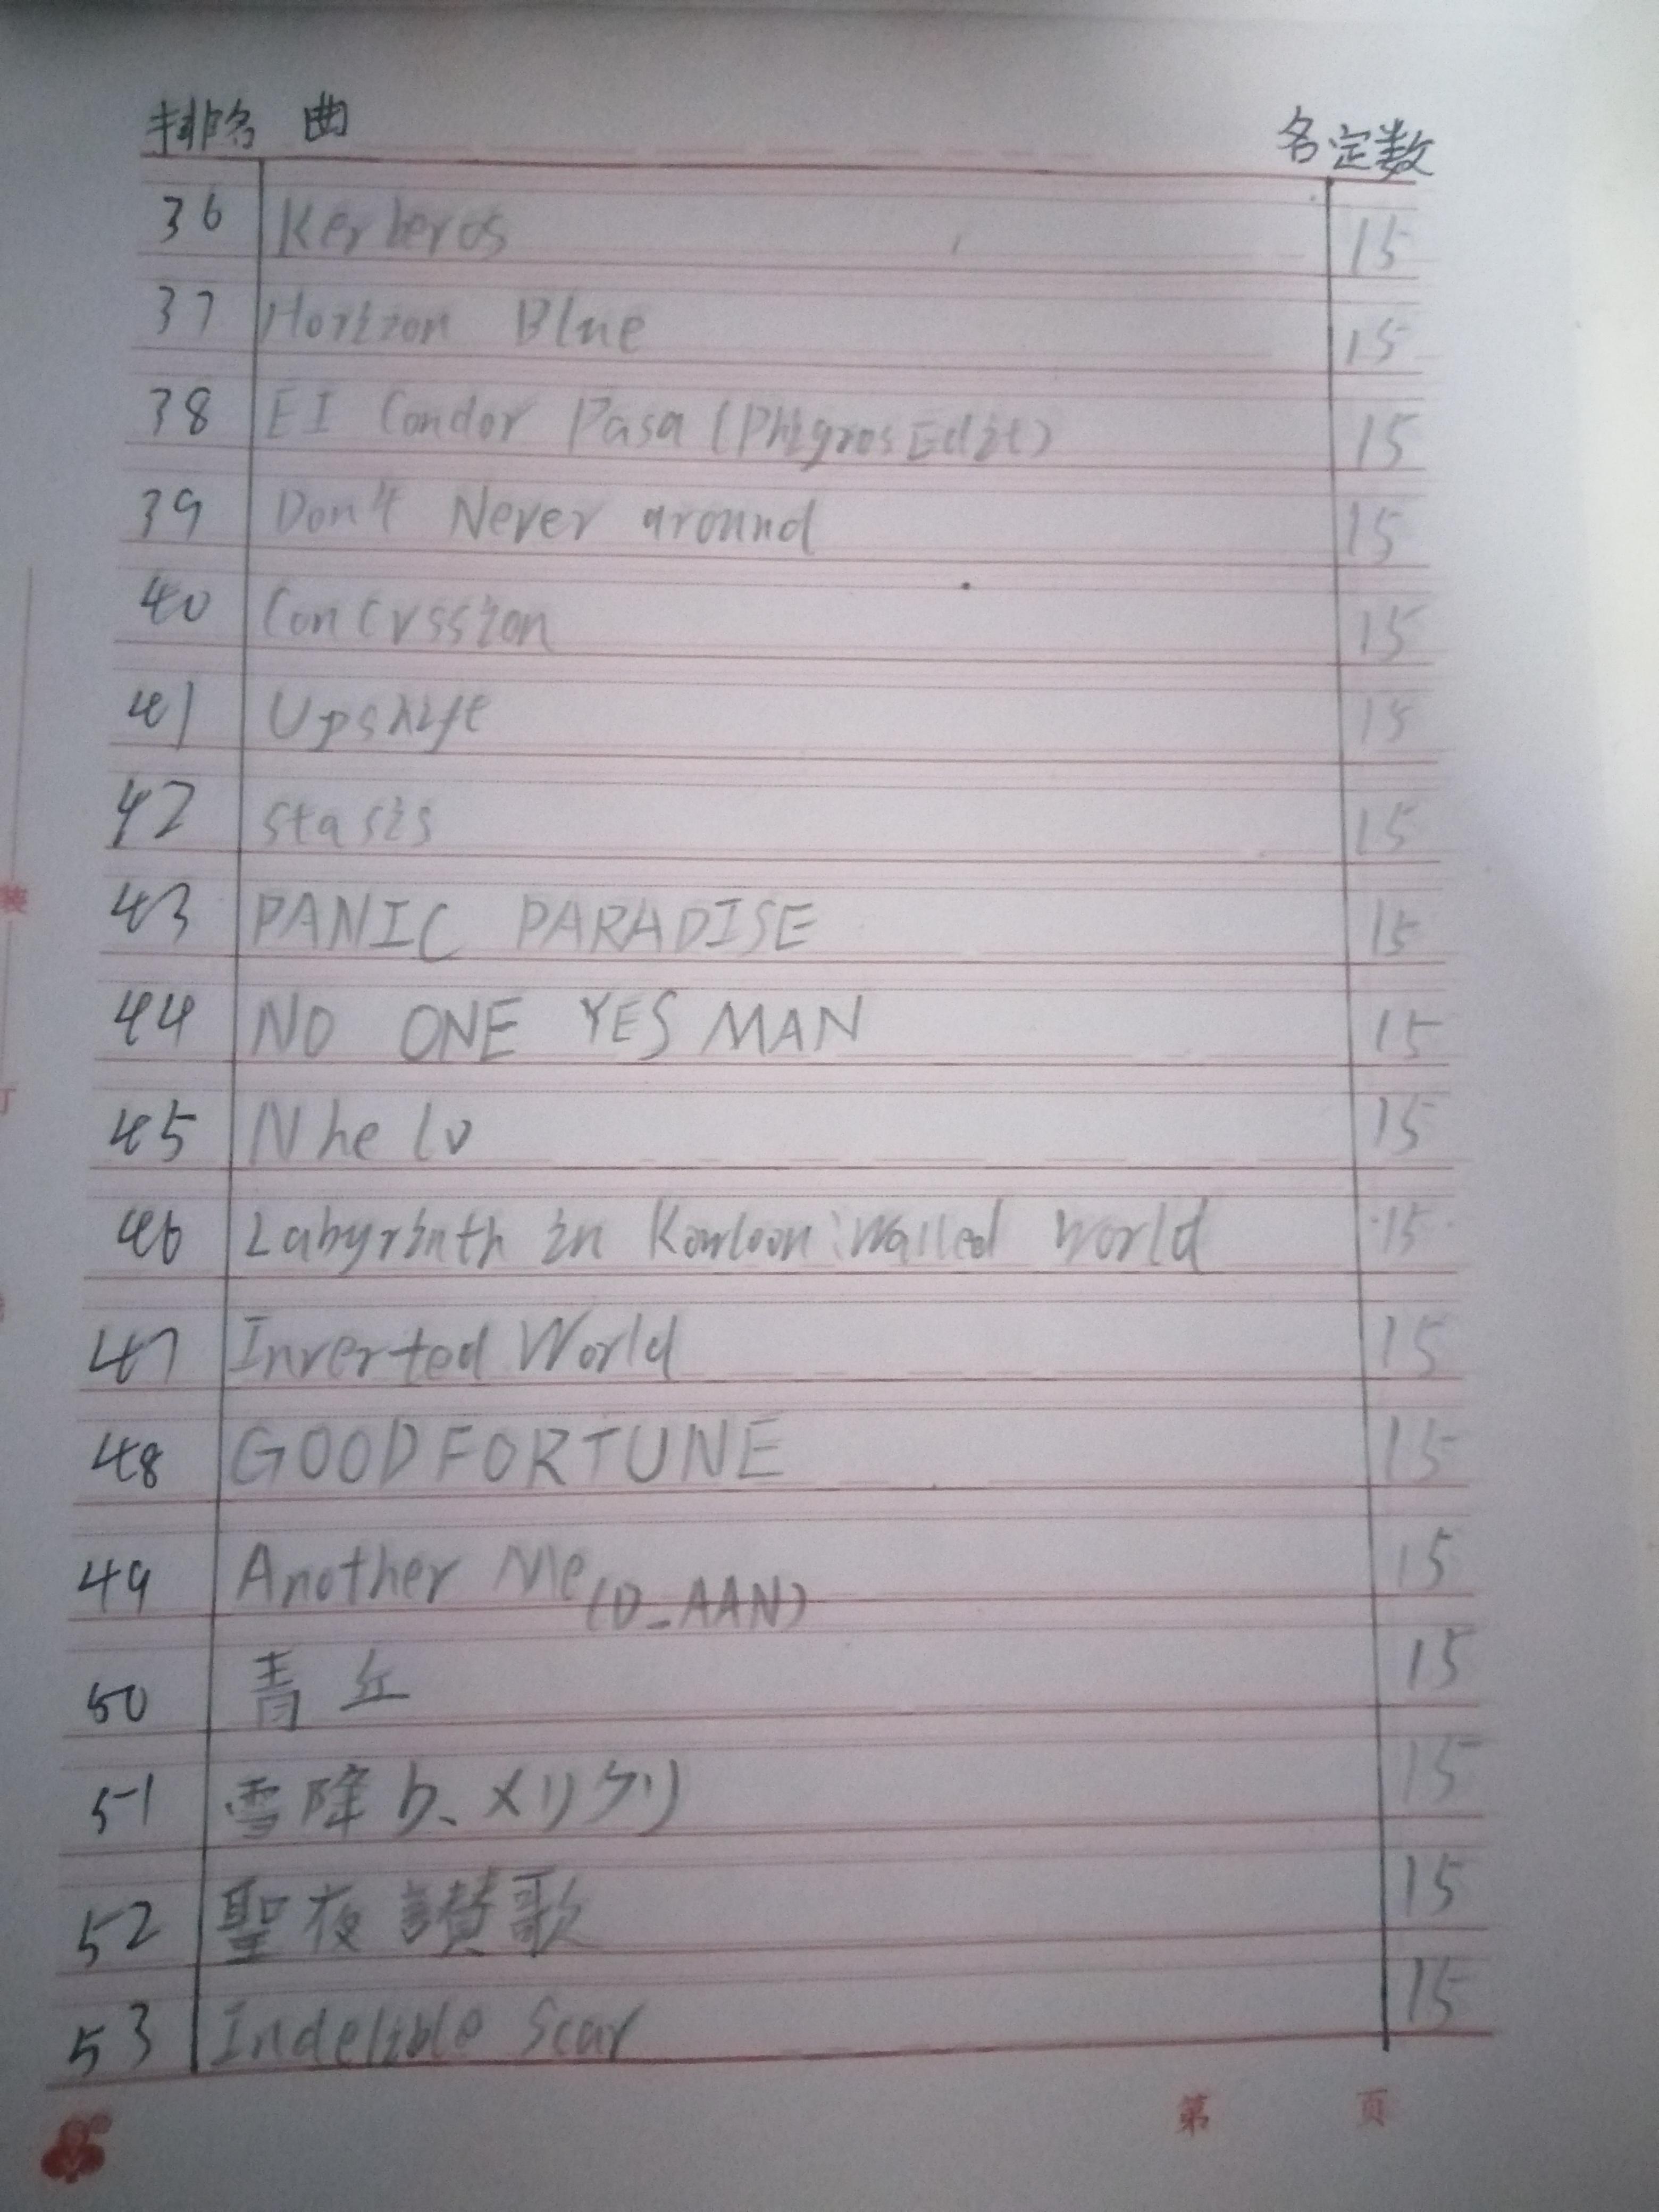 排名 曲 名 定数
36 Kerberos 15
37 Horizon Blue 15
38 EI Condor Pasa (Phigros Edit) 15
39 Don't Never around 15
40 Concvssion 15
41 Upshift 15
42 Stasis 15
43 PANIC PARADISE 15
44 NO ONE YES MAN 15
45 Nhelv 15
46 Labyrinth in Kowloon:Walled world 15
47 Inverted World 15
48 GOODFORTUNE 15
49 Another Me (D_AAN) 15
50 青丘 15
51 雪降り、メリクリ 15
52 聖夜讃歌 15
53 Indelible Scar 15
装
订
第 页